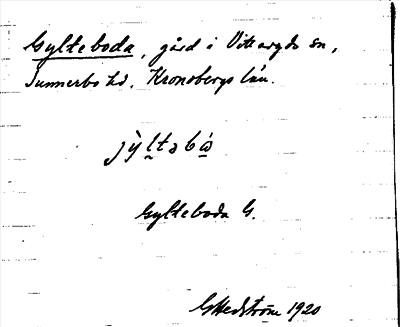 Gylteboda, gård i Vittaryds sn,
Sunnerbo hd. Kronobergs län.
Gylteboda G.
G Hedström 1920